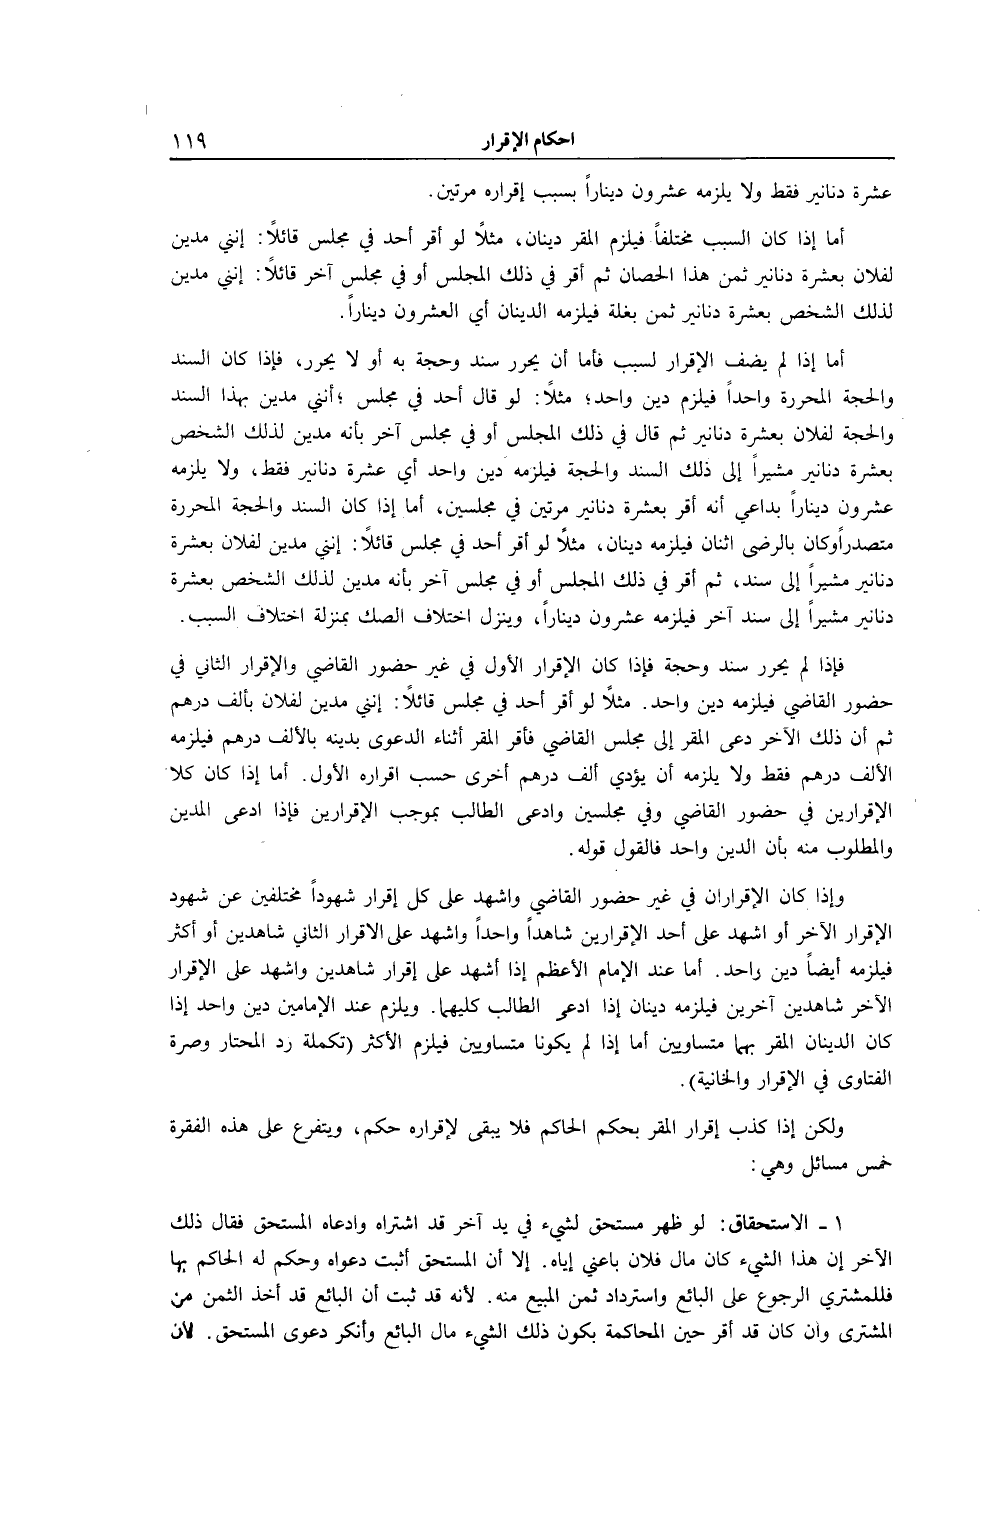 احكام الإقرار ١١٩
عشرة دنانير فقط ولا يلزمه عشرون ديناراً بسبب إقراره مرتين.
أما إذا كان السبب مختلفاً فيلزم المقر دينان، مثلًا لو أقر أحد في مجلس قائلًا: إنني مدين
لفلان بعشرة دنانير ثمن هذا الحصان ثم أقر في ذلك المجلس أو في مجلس آخر قائلًا: إنني مدين
لذلك الشخص بعشرة دنانير ثمن بغلة فيلزمه الدينان أي العشرون ديناراً.
أما إذا لم يضف الإقرار لسبب فأما أن يحرر سند وحجة به أو لا يحرر، فإذا كان السند
والحجة المحررة واحداً فيلزم دين واحد؛ مثلًا: لو قال أحد في مجلس ؛أنني مدين بهذا السند
والحجة لفلان بعشرة دنانير ثم قال في ذلك المجلس أو في مجلس آخر بأنه مدين لذلك الشخص
بعشرة دنانير مشيراً إلى ذلك السند والحجة فيلزمه دين واحد أي عشرة دنانير فقط، ولا يلزمه
عشرون ديناراً بداعي أنه أقر بعشرة دنانير مرتين في مجلسين، أما إذا كان السند والحجة المحررة
متصدراًوكان بالرضى اثنان فيلزمه دينان، مثلًا لو أقر أحد في مجلس قائلًا: إنني مدين لفلان بعشرة
دنانير مشيراً إلى سند، ثم أقر في ذلك المجلس أو في مجلس آخر بأنه مدين لذلك الشخص بعشرة
دنانير مشيراً إلى سند آخر فيلزمه عشرون ديناراً، وينزل اختلاف الصك بمنزلة اختلاف السبب.
فإذا لم يحرر سند وحجة فإذا كان الإقرار الأول في غير حضور القاضي والإقرار الثاني في
حضور القاضي فيلزمه دين واحد. مثلًا لو أقر أحد في مجلس قائلًا: إنني مدين لفلان بألف درهم
ثم أن ذلك الآخر دعى المقر إلى مجلس القاضي فأقر المقر أثناء الدعوى بدينه بالألف درهم فيلزمه
الألف درهم فقط ولا يلزمه أن يؤدي ألف درهم أخرى حسب اقراره الأول. أما إذا كان كلا
الإقرارين في حضور القاضي وفي مجلسين وادعى الطالب بموجب الإقرارين فإذا ادعى المدين
والمطلوب منه بأن الدين واحد فالقول قوله.
وإذا كان الإقراران في غير حضور القاضي واشهد على كل إقرار شهوداً مختلفين عن شهود
الإقرار الآخر أو اشهد على أحد الإقرارين شاهداً واحداً واشهد على الاقرار الثاني شاهدين أو أكثر
فيلزمه أيضاً دين واحد. أما عند الإمام الأعظم إذا أشهد على إقرار شاهدين واشهد على الإقرار
الآخر شاهدين آخرين فيلزمه دينان إذا ادعى الطالب كليهما. ويلزم عند الإمامين دين واحد إذا
كان الدينان المقر بهما متساويين أما إذا لم يكونا متساويين فيلزم الأكثر (تكملة رد المحتار وصرة
الفتاوى في الإقرار والخانية).
ولكن إذا كذب إقرار المقر بحكم الحاكم فلا يبقى لإقراره حكم، ويتفرع على هذه الفقرة
خمس مسائل وهي:
١ ـ الاستحقاق: لو ظهر مستحق لشيء في يد آخر قد اشتراه وادعاه المستحق فقال ذلك
الآخر إن هذا الشيء كان مال فلان باعني إياه. إلا أن المستحق أثبت دعواه وحكم له الحاكم بها
فللمشتري الرجوع على البائع واسترداد ثمن المبيع منه. لأنه قد ثبت أن البائع قد أخذ الثمن من
المشترى وأن كان قد أقر حين المحاكمة بكون ذلك الشيء مال البائع وأنكر دعوى المستحق. لأن